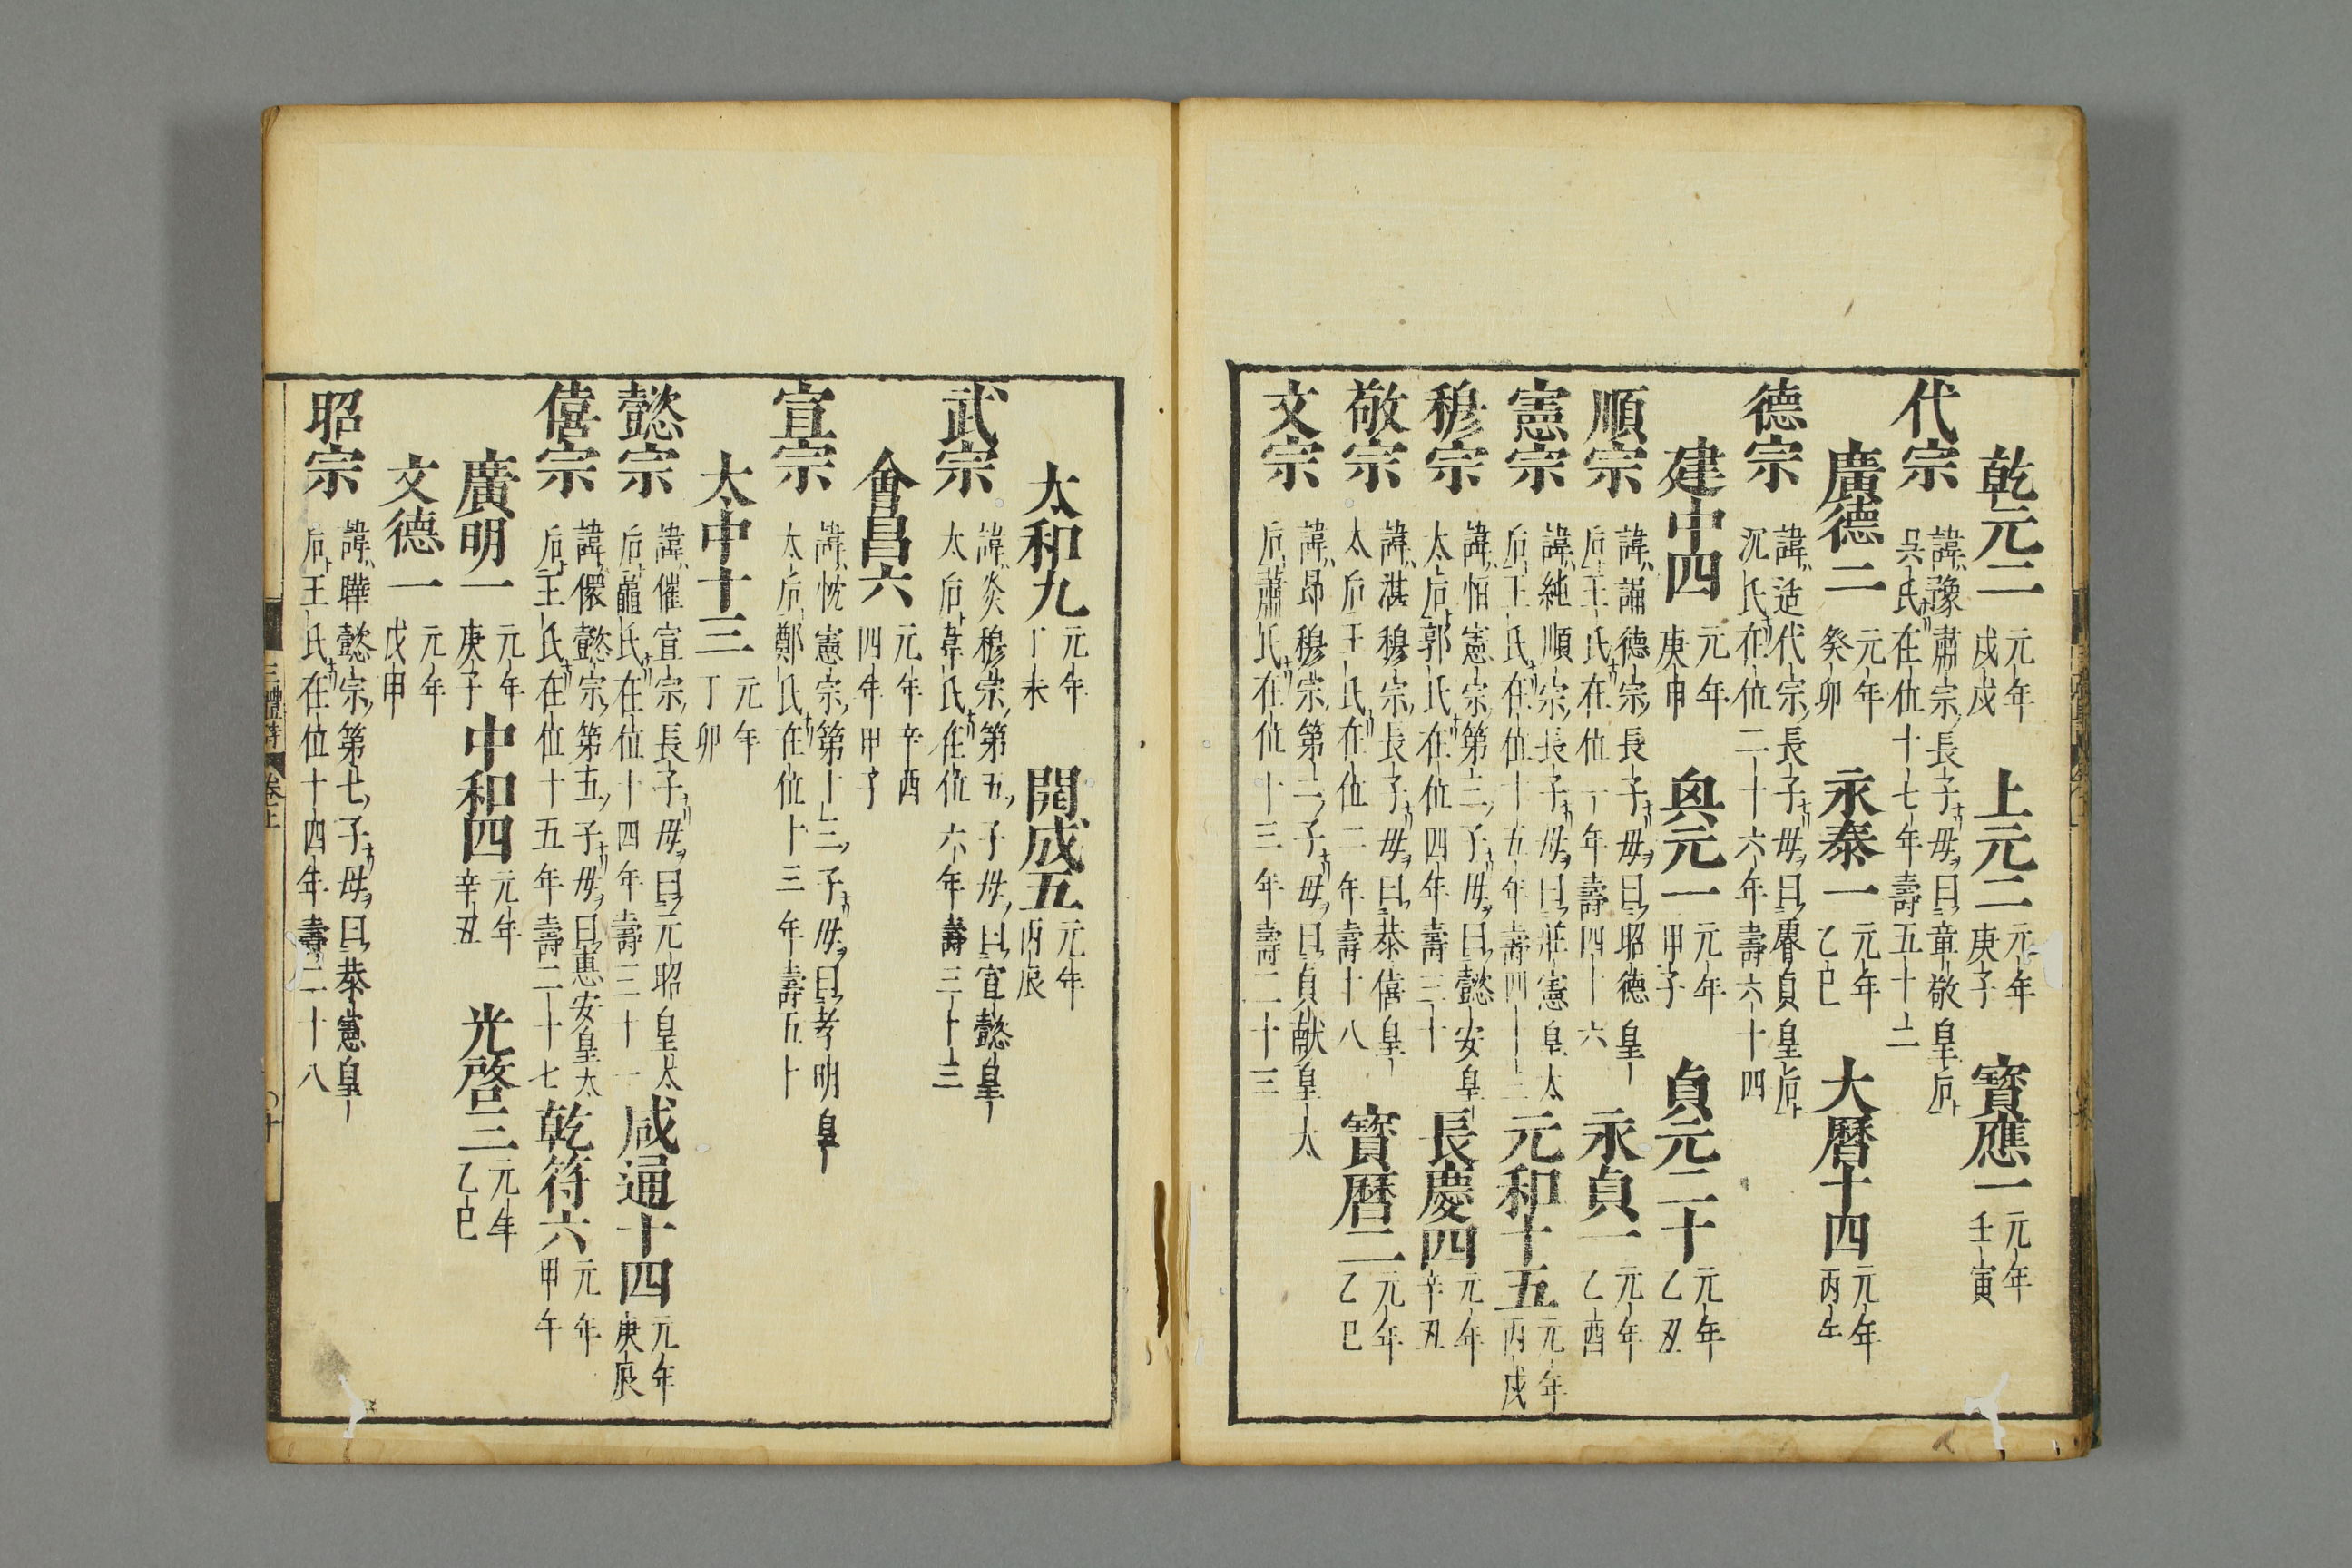 乾元二 元年戊戌 上元二 元年庚子 寳應一 元年壬寅
代宗 諱豫肅宗長子母曰章敬皇后呉氏在位十七年壽五十二
廣德二 元年癸卯 永泰一 元年乙巳 大曆十四 元年丙午
德宗 諱适代宗長子母曰睿貞皇后沉氏在位二十六年壽六十四
建中四 元年庚申 興元一 元年甲子 貞元二十 元年乙丑
順宗 諱誦德宗長子母曰昭德皇后王氏在位一年壽四十六 永貞一 元年乙酉
憲宗 諱純順宗長子母曰莊憲皇太后王氏在位十五年壽四十三 元和十五 元年丙戌
穆宗 諱恒憲宗第三子母曰懿安皇太后郭氏在位四年壽三十 長慶四 元年辛丑
敬宗 諱湛穆宗長子母曰恭僖皇太后王氏在位二年壽十八 寳曆二 元年乙巳
文宗 諱昂穆宗第二子母曰貞献皇太后蕭氏在位十三年壽二十三
太和九 元年丁未 開成五 元年丙辰
武宗 諱炎穆宗第五子母曰宣懿皇太后韋氏在位六年壽三十三
會昌六 元年辛酉四年甲子
宣宗 諱忱憲宗第十三子母曰孝明皇太后鄭氏在位十三年壽五十
太中十三 元年丁卯
懿宗 諱催宣宗長子母曰元昭皇太后鼂氏在位十四年壽三十一 咸通十四 元年庚辰
僖宗 諱儇懿宗第五子母曰惠安皇太后王氏在位十五年壽二十七 乾符六 元年甲午
廣明一 元年庚子 中和四 元年辛丑 光啓三 元年乙巳
文德一 元年戊申
昭宗 諱曄懿宗第七子母曰恭憲皇后王氏在位十四年壽三十八
三體詩 卷之上